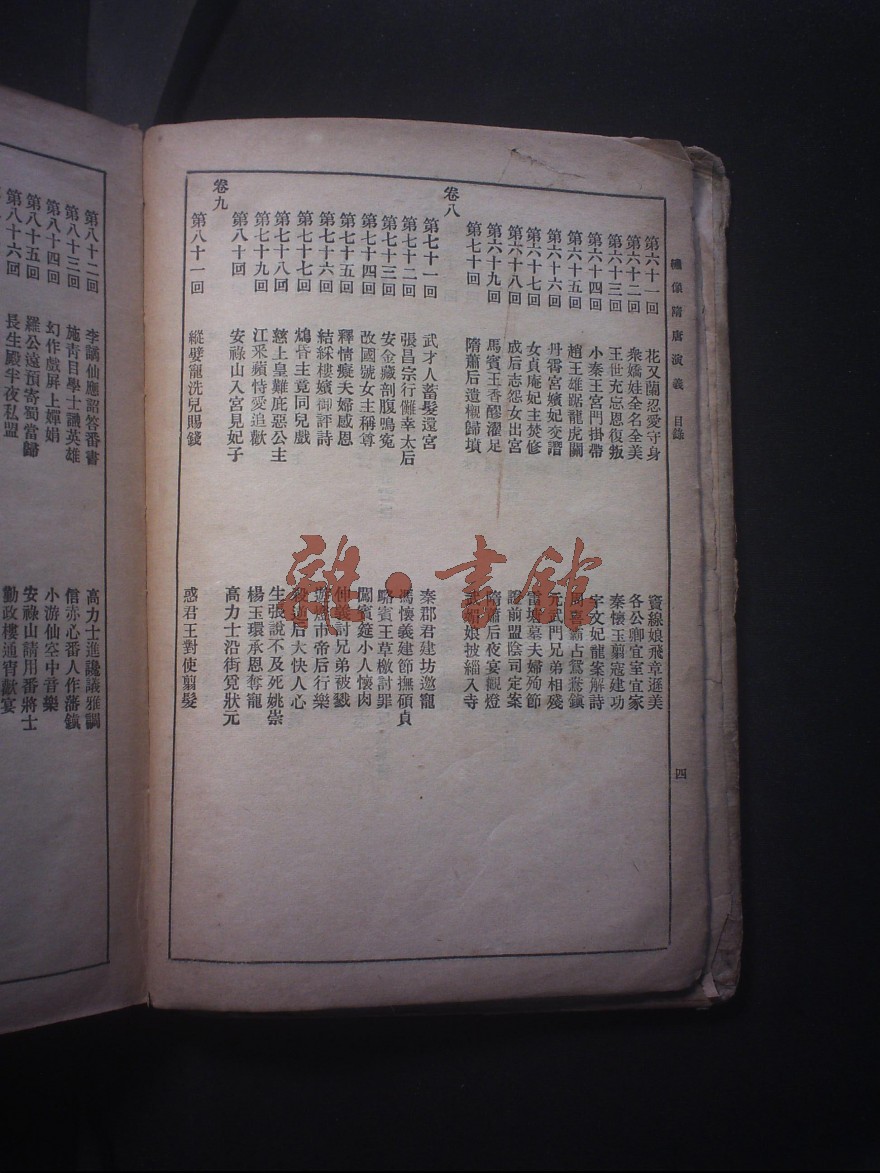 繡像隋唐演義 目錄 四
第六十一回 花又蘭忍愛守身 竇線娘飛章遜美
第六十二回 衆嬌娃全名全美 各公卿宜室宜家
第六十三回 王世充忘恩復叛 秦懷玉翦寇建功
第六十四回 小秦王宮門掛帶 宇文妃龍案解詩
第六十五回 趙王雄踞龍虎關 周喜霸占鴛鴦鎭
第六十六回 丹霄宮嬪妃交譖 元武門兄弟相殘
第六十七回 女貞庵妃主焚修 雷塘墓夫婦殉節
第六十八回 成后志怨女出宮 證前盟陰司定案
第六十九回 馬賓王香醪濯足 隋蕭后夜宴觀燈
第七十回 隋蕭后遺櫬歸墳 武媚娘披緇入寺
卷八
第七十一回 武才人蓄髮還宮 秦郡君建坊邀寵
第七十二回 張昌宗行儺幸太后 馮懷義建節撫碩貞
第七十三回 安金藏剖腹鳴寃 駱賓王草檄討罪
第七十四回 改國號女主稱尊 闖賓筵小人懷肉
第七十五回 釋情癡夫婦感恩 伸義討兄弟被戮
第七十六回 結綵樓嬪御評詩 遊燈市帝后行樂
第七十七回 鴆昏主竟同兒戲 殺逆后大快人心
第七十八回 慈上皇難庇惡公主 生張說不及死姚崇
第七十九回 江釆蘋恃愛追歡 楊玉環承恩奪寵
第八十回 安祿山入宮見妃子 高力士沿街覓狀元
卷九
第八十一回 縱嬖寵洗兒賜錢 惑君王對使翦髮
第八十二回 李謫仙應詔答番書 高力士進讒議雅調
第八十三回 施靑目學士識英雄 信赤心番人作藩鎭
第八十四回 幻作戲屏上嬋娟 小游仙空中音樂
第八十五回 羅公遠預寄蜀當歸 安祿山請用番將士
第八十六回 長生殿半夜私盟 勤政樓通宵歡宴
書館